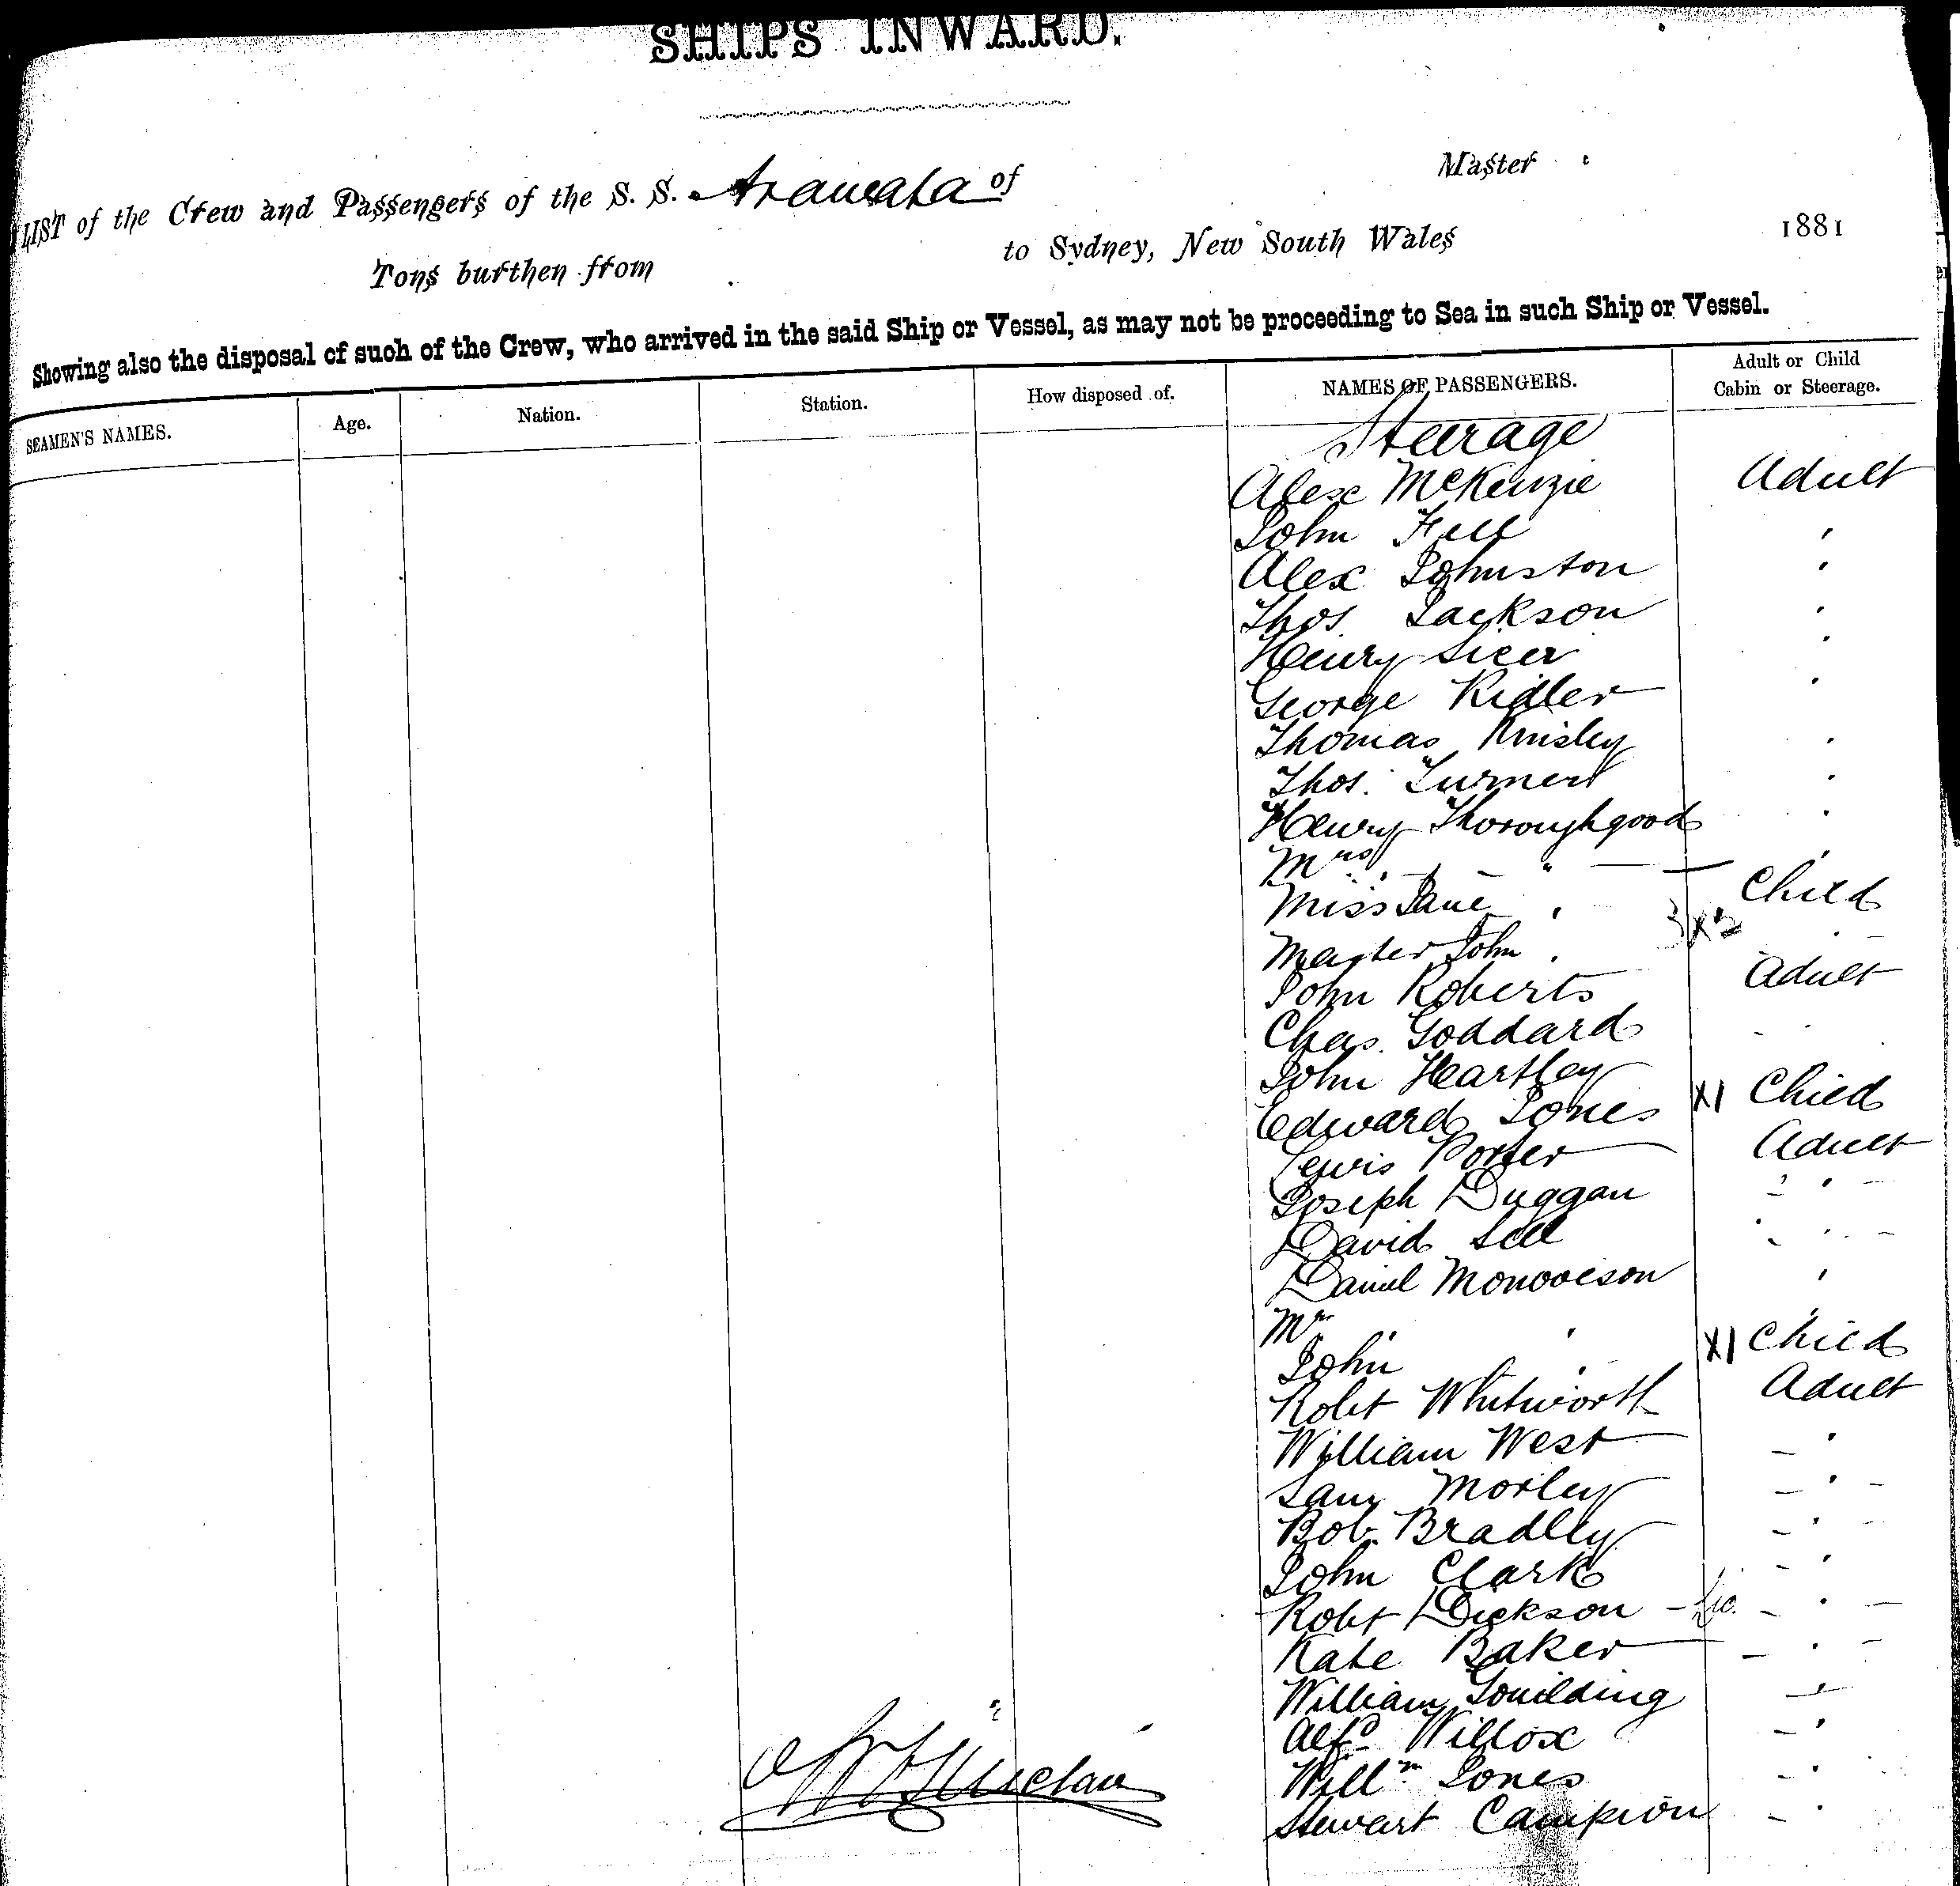 SHIPS INWARD.
LIST of the Crew and Passengers of the S. S. Arawata of Master
Tons burthen from to Sydney, New South Wales 1881
Showing also the disposal of such of the Crew, who arrived in the said Ship or Vessel, as may not be proceeding to Sea in such Ship or Vessel.
SEAMEN'S NAMES. Age. Nation. Station. How disposed of. NAMES OF PASSENGERS. Adult or Child Cabin or Steerage.
Steerage
Alex McKenzie Adult
John Fell "
Alex Johnston "
Thos Jackson "
Henry "
George Ridler "
Thomas Kinsley "
Thos. Turner "
Henry Thoroughgood "
Mrs " "
Miss Jane " Child
Master John "
John Roberts Adult
Chas. Goddard "
John Heartley
Edward Jones X1 Child
Lewis Porter Adult
Joseph Duggan "
David Sell "
Daniel "
Mr " "
John " X1 Child
Robt Whitworth Adult
William West "
Sam Morley "
Bob. Bradley "
John Clark "
Robt Dickson "
Kate Baker "
William Goulding "
Alfd Willox "
Willm Jones "
Stewart Campion "
Sinclair